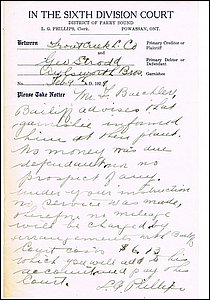 IN THE SIXTH DIVISION COURT
DISTRICT OF PARRY SOUND
L. G. PHILLIPS, Clerk. POWASSAN, ONT.
Between Trout Creek L. Co Primary Creditor or Plaintiff
and
Geo Strodd Primary Debtor, or Defendant
Aylsworth Bros Garnishee
Feb 9 A.D. 192
Please Take Notice Mr. L. Buechler
Bailiff advises that
Garnishee informed
him at their place.
No money was due
defendant nor no
prospect of any.
under your instruction
no service was made,
therefore no mileage
will be charged by
arrangements with Bailiff
Court costs $6
which you will add to his
account and pay this
Court.
L G Phillips